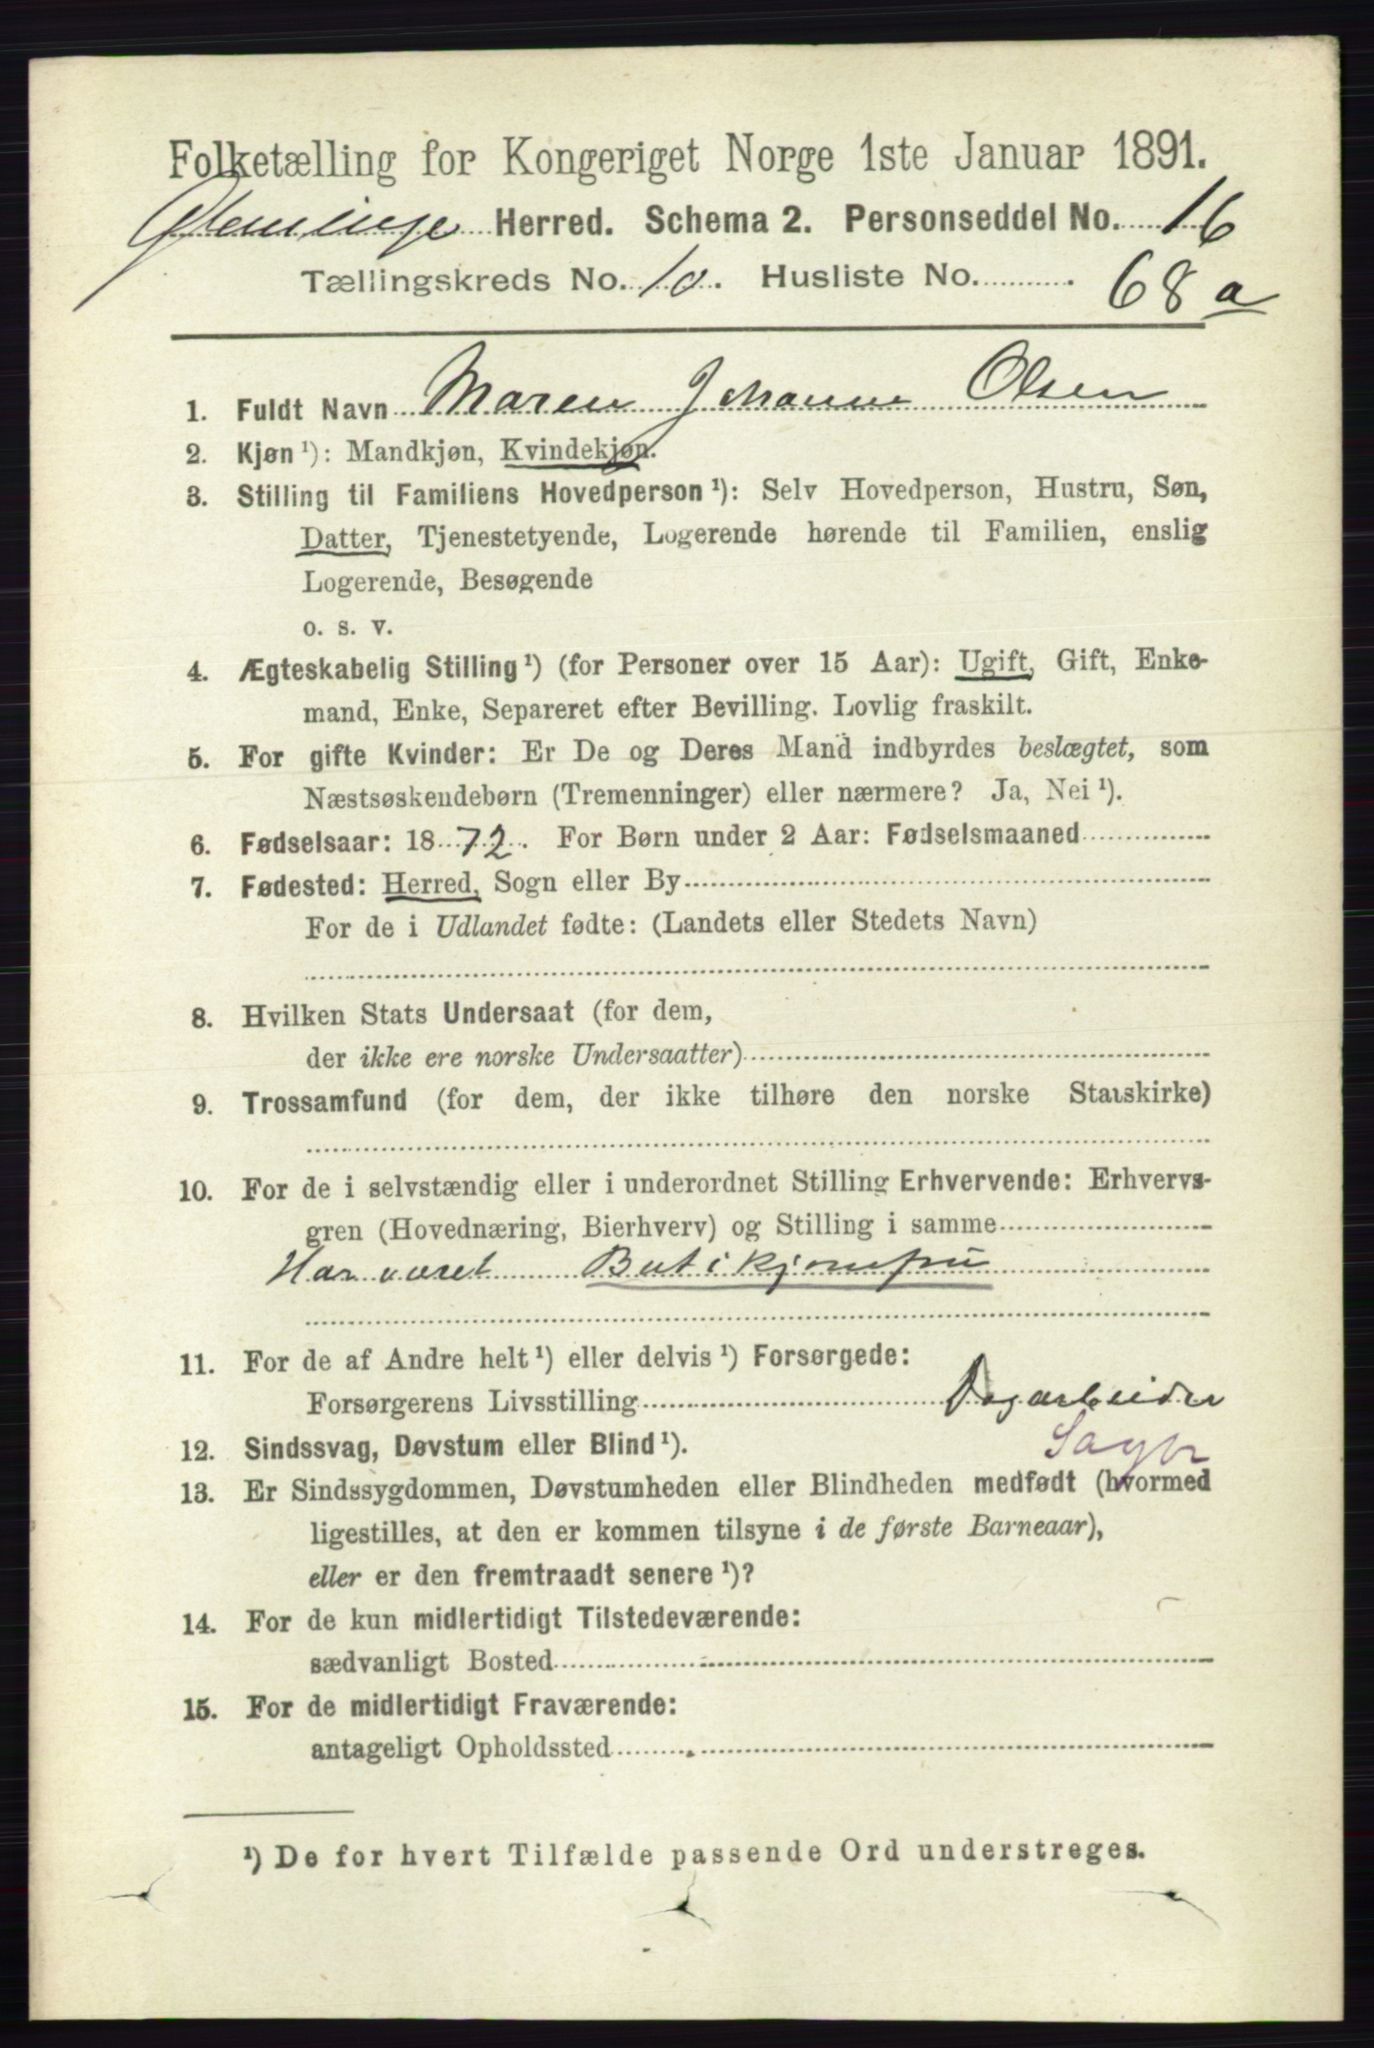 Folketælling for Kongeriget Norge 1ste Januar 1891.
Glemminge Herred. Schema 2. Personseddel No. 16
Tællingskreds No. 10. Husliste No. 68 a
1. Fuldt Navn Maren Johanne Olsen
2. Kjøn ¹): Mandkjøn, Kvindekjøn.
3. Stilling til Familiens Hovedperson ¹): Selv Hovedperson, Hustru, Søn,
Datter, Tjenestetyende, Logerende hørende til Familien, enslig
Logerende, Besøgende
o. s. v.
4. Ægteskabelig Stilling ¹) (for Personer over 15 Aar): Ugift, Gift, Enke-
mand, Enke, Separeret efter Bevilling. Lovlig fraskilt.
5. For gifte Kvinder: Er De og Deres Mand indbyrdes beslægtet, som
Næstsøskendebørn (Tremenninger) eller nærmere? Ja, Nei ¹).
6. Fødselsaar: 1872. For Børn under 2 Aar: Fødselsmaaned
7. Fødested: Herred, Sogn eller By
For de i Udlandet fødte: (Landets eller Stedets Navn)
8. Hvilken Stats Undersaat (for dem,
der ikke ere norske Undersaatter)
9. Trossamfund (for dem, der ikke tilhøre den norske Statskirke)
10. For de i selvstændig eller i underordnet Stilling Erhvervende: Erhvervs-
gren (Hovednæring, Bierhverv) og Stilling i samme
Har været Butikjomfru
11. For de af Andre helt ¹) eller delvis ¹) Forsørgede:
Forsørgerens Livsstilling Dagarbeider
Sagbr
12. Sindssvag, Døvstum eller Blind ¹).
13. Er Sindssygdommen, Døvstumheden eller Blindheden medfødt (hvormed
ligestilles, at den er kommen tilsyne i de første Barneaar),
eller er den fremtraadt senere ¹)?
14. For de kun midlertidigt Tilstedeværende:
sædvanligt Bosted
15. For de midlertidigt Fraværende:
antageligt Opholdssted
¹) De for hvert Tilfælde passende Ord understreges.